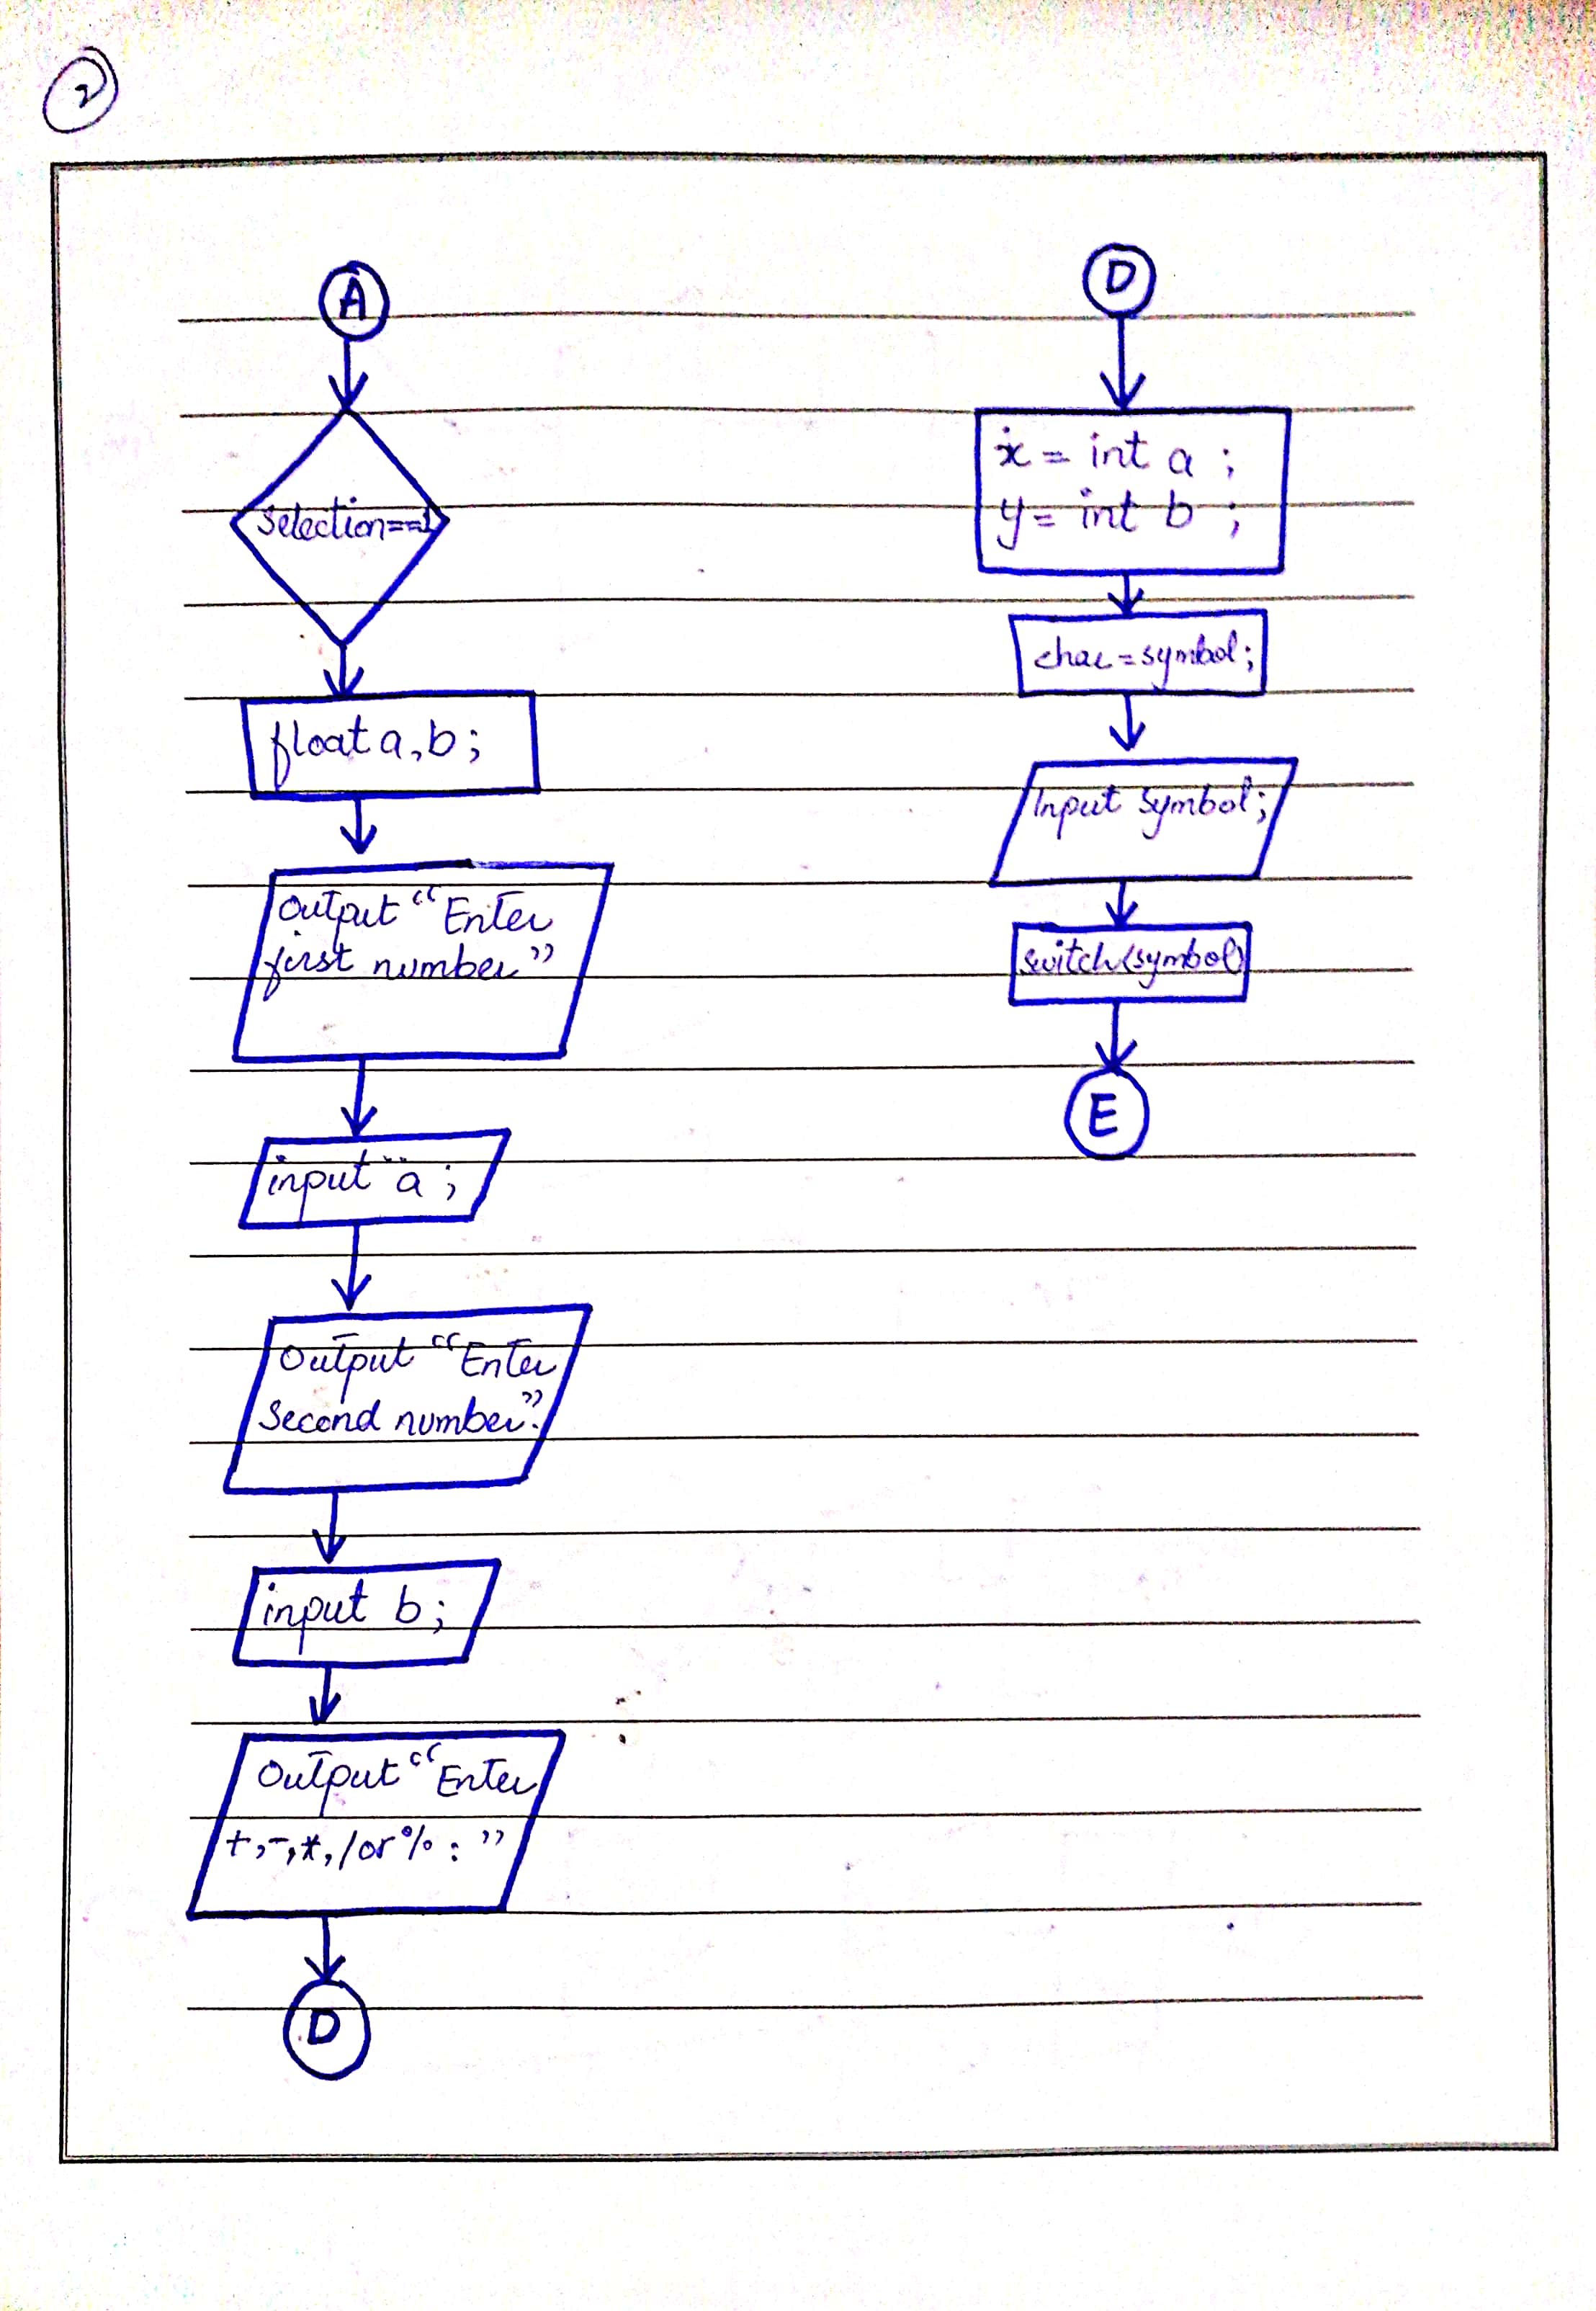 2
A
Selection==1
float a,b;
Output “Enter
first number”
input a;
Output “Enter
Second number”.
input b;
Output “Enter
+,-,*,/or%:”
D
D
x = int a ;
y = int b ;
char=symbol;
Input Symbol;
switch(symbol)
E